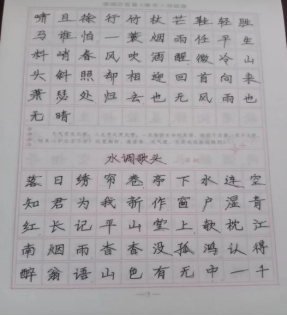 啸且徐行竹杖芒鞋轻胜
马谁怕一蓑烟雨任平生
料峭春风吹酒醒微冷山
头斜照却相迎回首向来
萧瑟处归去也无风雨也
无晴
水调歌头
落日绣帘卷亭下水连空
知君为我新作窗户湿青
红长记平山堂上欹枕江
南烟雨杳杳没孤鸿认得
醉翁语山色有无中一千